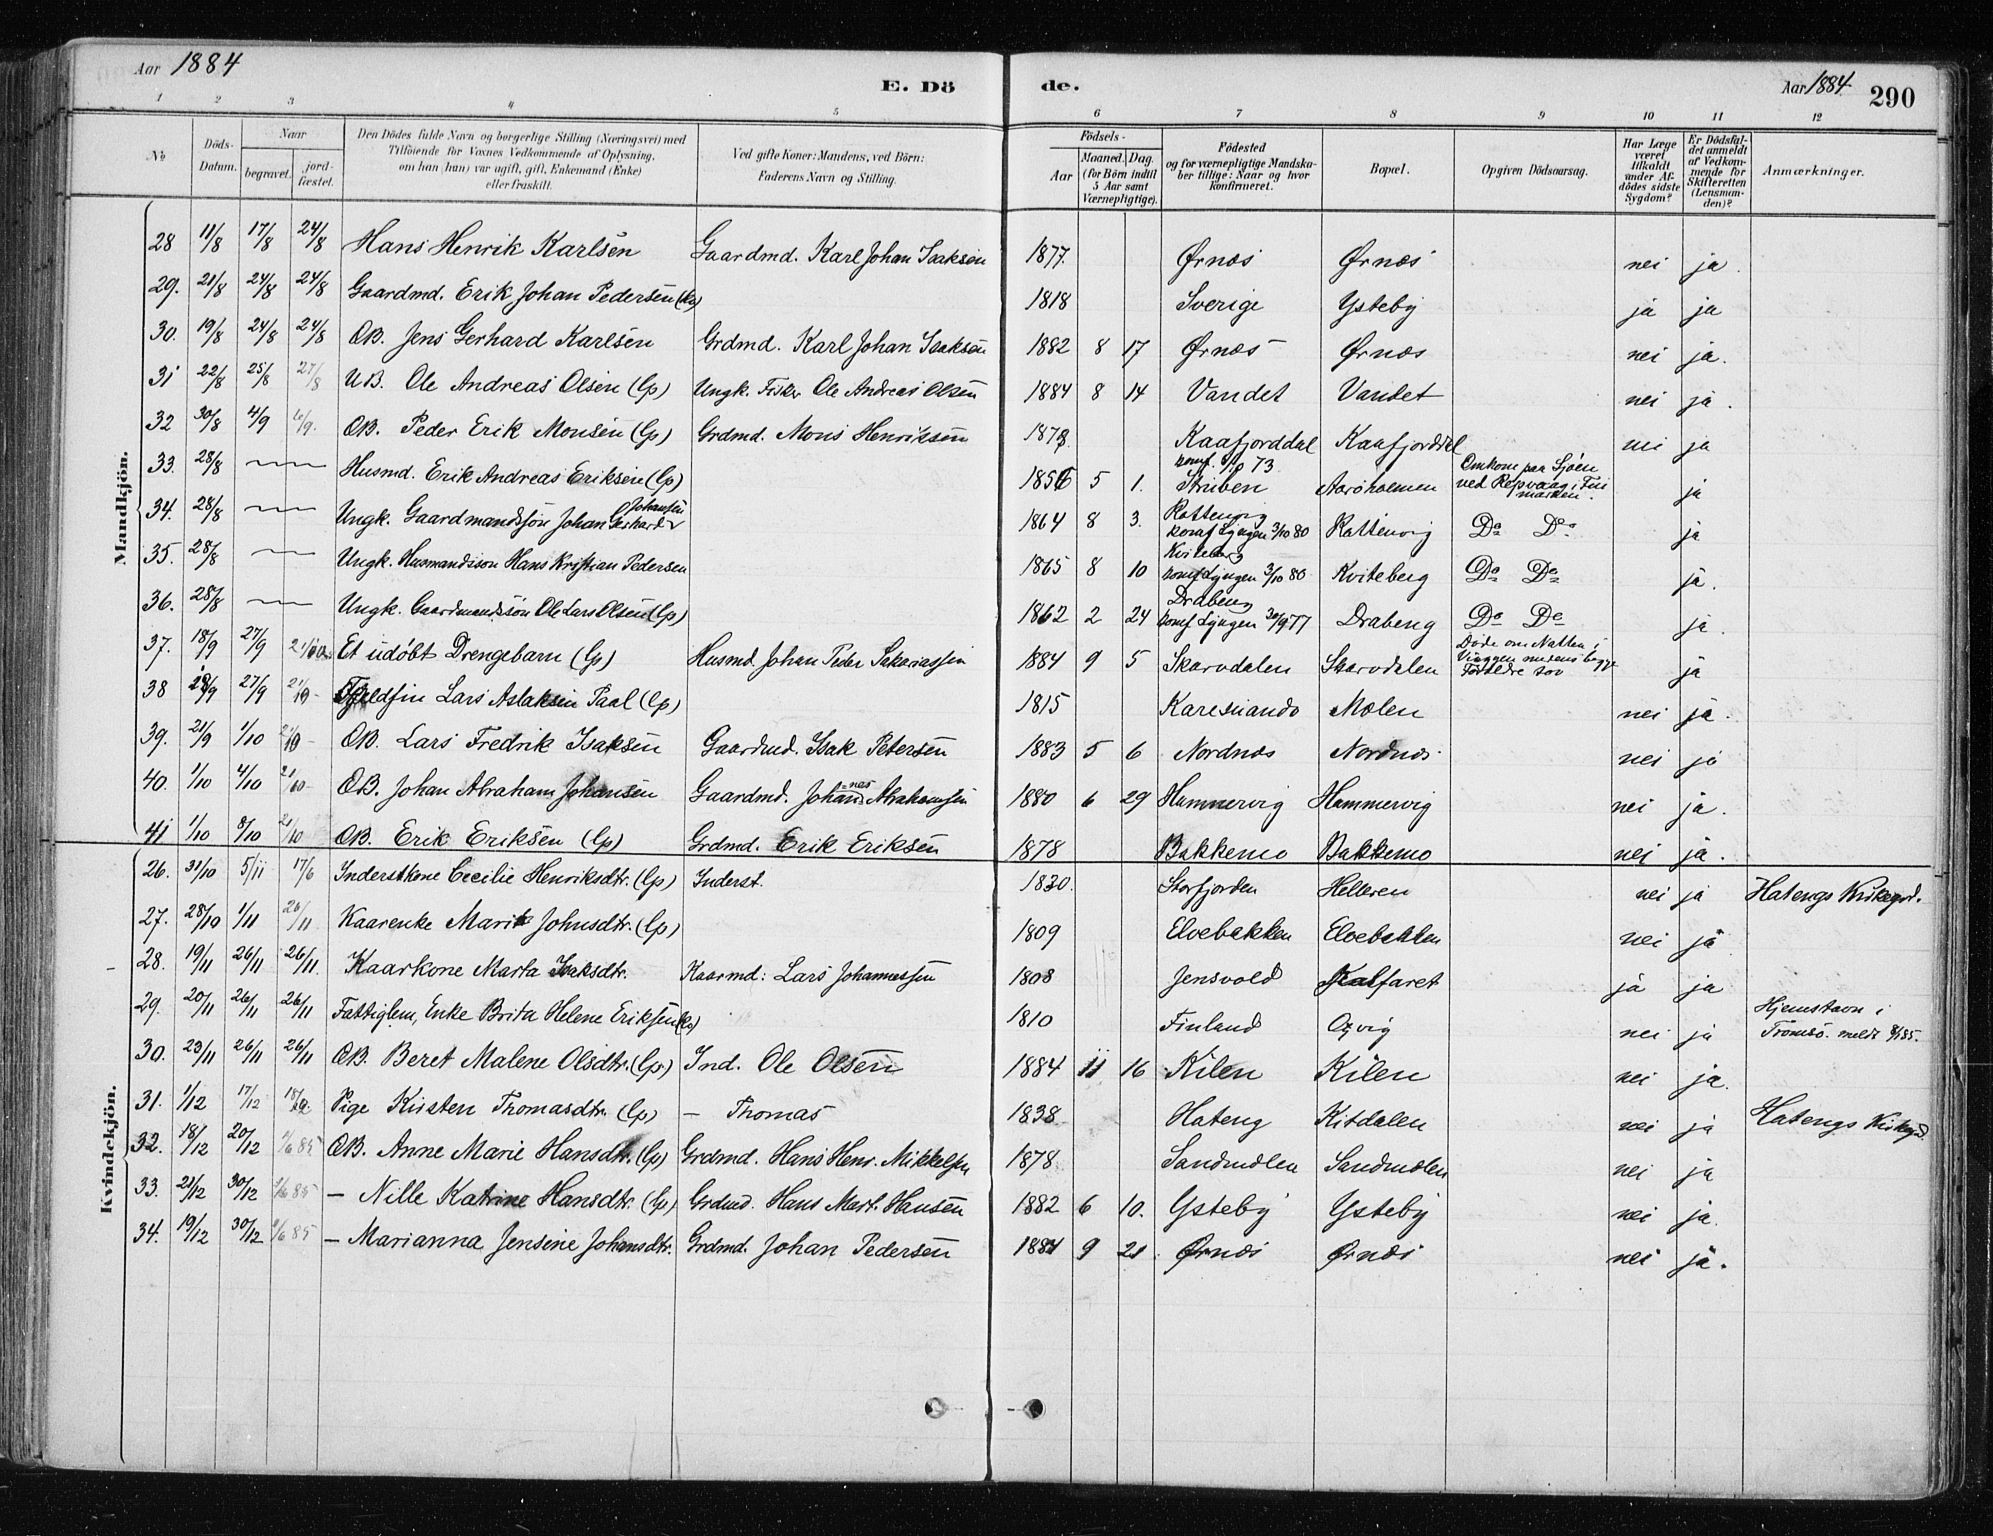 Aar 1884
E. Dö de.
Aar 1884
290
1 2 3 4 5 6 7 8 9 10 11 12
No
Döds-Datum.
Naar
begravet.
jord-fæstet.
Den Dödes fulde Navn og borgerlige Stilling (Næringsvei) med
Tilföiende for Voxnes Vedkommende af Oplysning,
om han (hun) var ugift, gift, Enkemand (Enke)
eller fraskilt.
Ved gifte Koner: Mandens, ved Börn:
Faderens Navn og Stilling.
Födsels-
Aar
Maaned. Dag.
(for Börn indtil
5 Aar samt
Værnepligtige).
Födested
og for værnepligtige Mandska-
ber tillige: Naar og hvor
konfirmeret.
Bopæl.
Opgiven Dödsaarsag.
Har Læge
været
tilkaldt
under Af-
dödes sidste
Sygdom?
Er Dödsfal-
det anmeldt
af Vedkom-
mende for
Skifteretten
(Lensman-
den)?
Anmærkninger.
Mandkjön.
28 11/8 17/8 24/8 Hans Henrik Karlsen Gaardmd. Karl Johan Isaksen 1877. Ørnæs Ørnæs nei ja.
29. 21/8 24/8 24/8 Gaardmd. Erik Johan Pedersen 1818 Sverige Ysteby ja ja
30. 19/8 24/8 24/8 ÆB. Jens Gerhard Karlsen Grdmd. Karl Johan Isaksen 1882 8 17 Ørnæs Ørnæs nei ja.
31 22/8 25/8 27/8 UB. Ole Andreas Olsen (Lp) Ungk. Fisker Ole Andreas Olsen 1884 8 14 Vandet Vandet nei ja.
32 30/8 4/9 6/9. ÆB. Peder Erik Monsen (Lp) Grdmd. Mons Henriksen Kaafjorddal Kaafjorddal nei ja
33. 28/8 — Husmd. Erik Andreas Eriksen (Lp) 5 1. konf. 73 Struben Aarøholmen Omkom paa Sjøen
ved Repvaag i Fin
marken. ja
34. 28/8 — Ungk. Gaardmandssøn Johan Gerhard Johansen 1864 8 3. Rottenvig
konf Lyngen 3/10 80 Rottenvig Do Do ja
35. 28/8 — Ungk. Husmandssøn Hans Kristian Pedersen 1865 8 10 Kviteberg
konf Lyngen 3/10 80 Kviteberg Do Do ja.
36. 28/8 — Ungk. Gaardmandssøn Ole Lars Olsen (Lp) 1862 2 24 Drabeng
konf Lyngen 30/9 77 Drabeng Do Do ja.
37. 18/9 27/9 21/10 Et udøbt Drengebarn (Lp) Husmd. Johan Peder Sakariassen 1884 9 5 Skarvdalen Skarvdalen Døde om Natten i
Vuggen mens begge
Forældre sov ja
38 27/9 21/10 - Fjeldfin Lars Aslaksen Paal (Lp) 1815 Karesuando Molen nei ja.
39. 21/9 1/10 21/10 - ÆB. Lars Fredrik Isaksen Gaardmd. Isak Petersen 1883 5 6 Nordnæs Nordnæs nei ja
40. 1/10 4/10 21/10 - ÆB. Johan Abraham Johansen Gaardmd. Johannes Abrahamsen 1880 6 29 Hammervig Hammervig nei ja.
41 1/10 8/10 21/10 ÆB. Erik Eriksen (Lp) Grdmd. Erik Eriksen 1878 Bakkemo Bakkemo nei ja.
Kvindekjön.
26. 31/10 5/11 17/6 Inderstkone Cecilie Henriksdtr. (Lp) Inderst. 1830. Storfjorden Helleren nei ja Hatengs Kirkegrd.
27. 28/10 1/11 26/11 Kaarenke Marit Johnsdtr. (Lp) 1809 Elvebakken Elvebakken nei ja
28. 19/11 26/11 26/11 Kaarkone Marta Isaksdtr. Kaarmd: Lars Johannessen 1808 Jensvold Kalfaret ja ja
29. 20/11 26/11 26/11 Fattiglem, Enke Brita Helene Eriksen 1810 Finland nei ja Hjemstavn i
Tromsø. meldt
30. 23/11 26/11 26/11 ÆB. Beret Malene Olsdtr. (Lp) Ind. Ole Olsen 1884 11 16 Kilen Kilen nei ja.
31. 1/12 17/12 Pige Kirsten Thomasdtr. (Lp) - Thomas 1838 Hateng Kitdalen nei ja Hatengs Kirkegrd.
32. 18/12 20/12 85 ÆB. Anne Marie Hansdtr. (Lp) Grdmd. Hans Henr. Mikkelsen 1878 Sandmolen Sandmolen nei ja
33. 21/12 30/12 85 — Nille Katrine Hansdtr. (Lp) Grdmd. Hans Mart. Hansen 1882 6 10. Ysteby Ysteby nei ja.
34. 19/12 30/12 85 — Marianna Jensine Johansdtr. Grdmd. Johan Pedersen 9 21. Ørnæs Ørnæs nei ja.